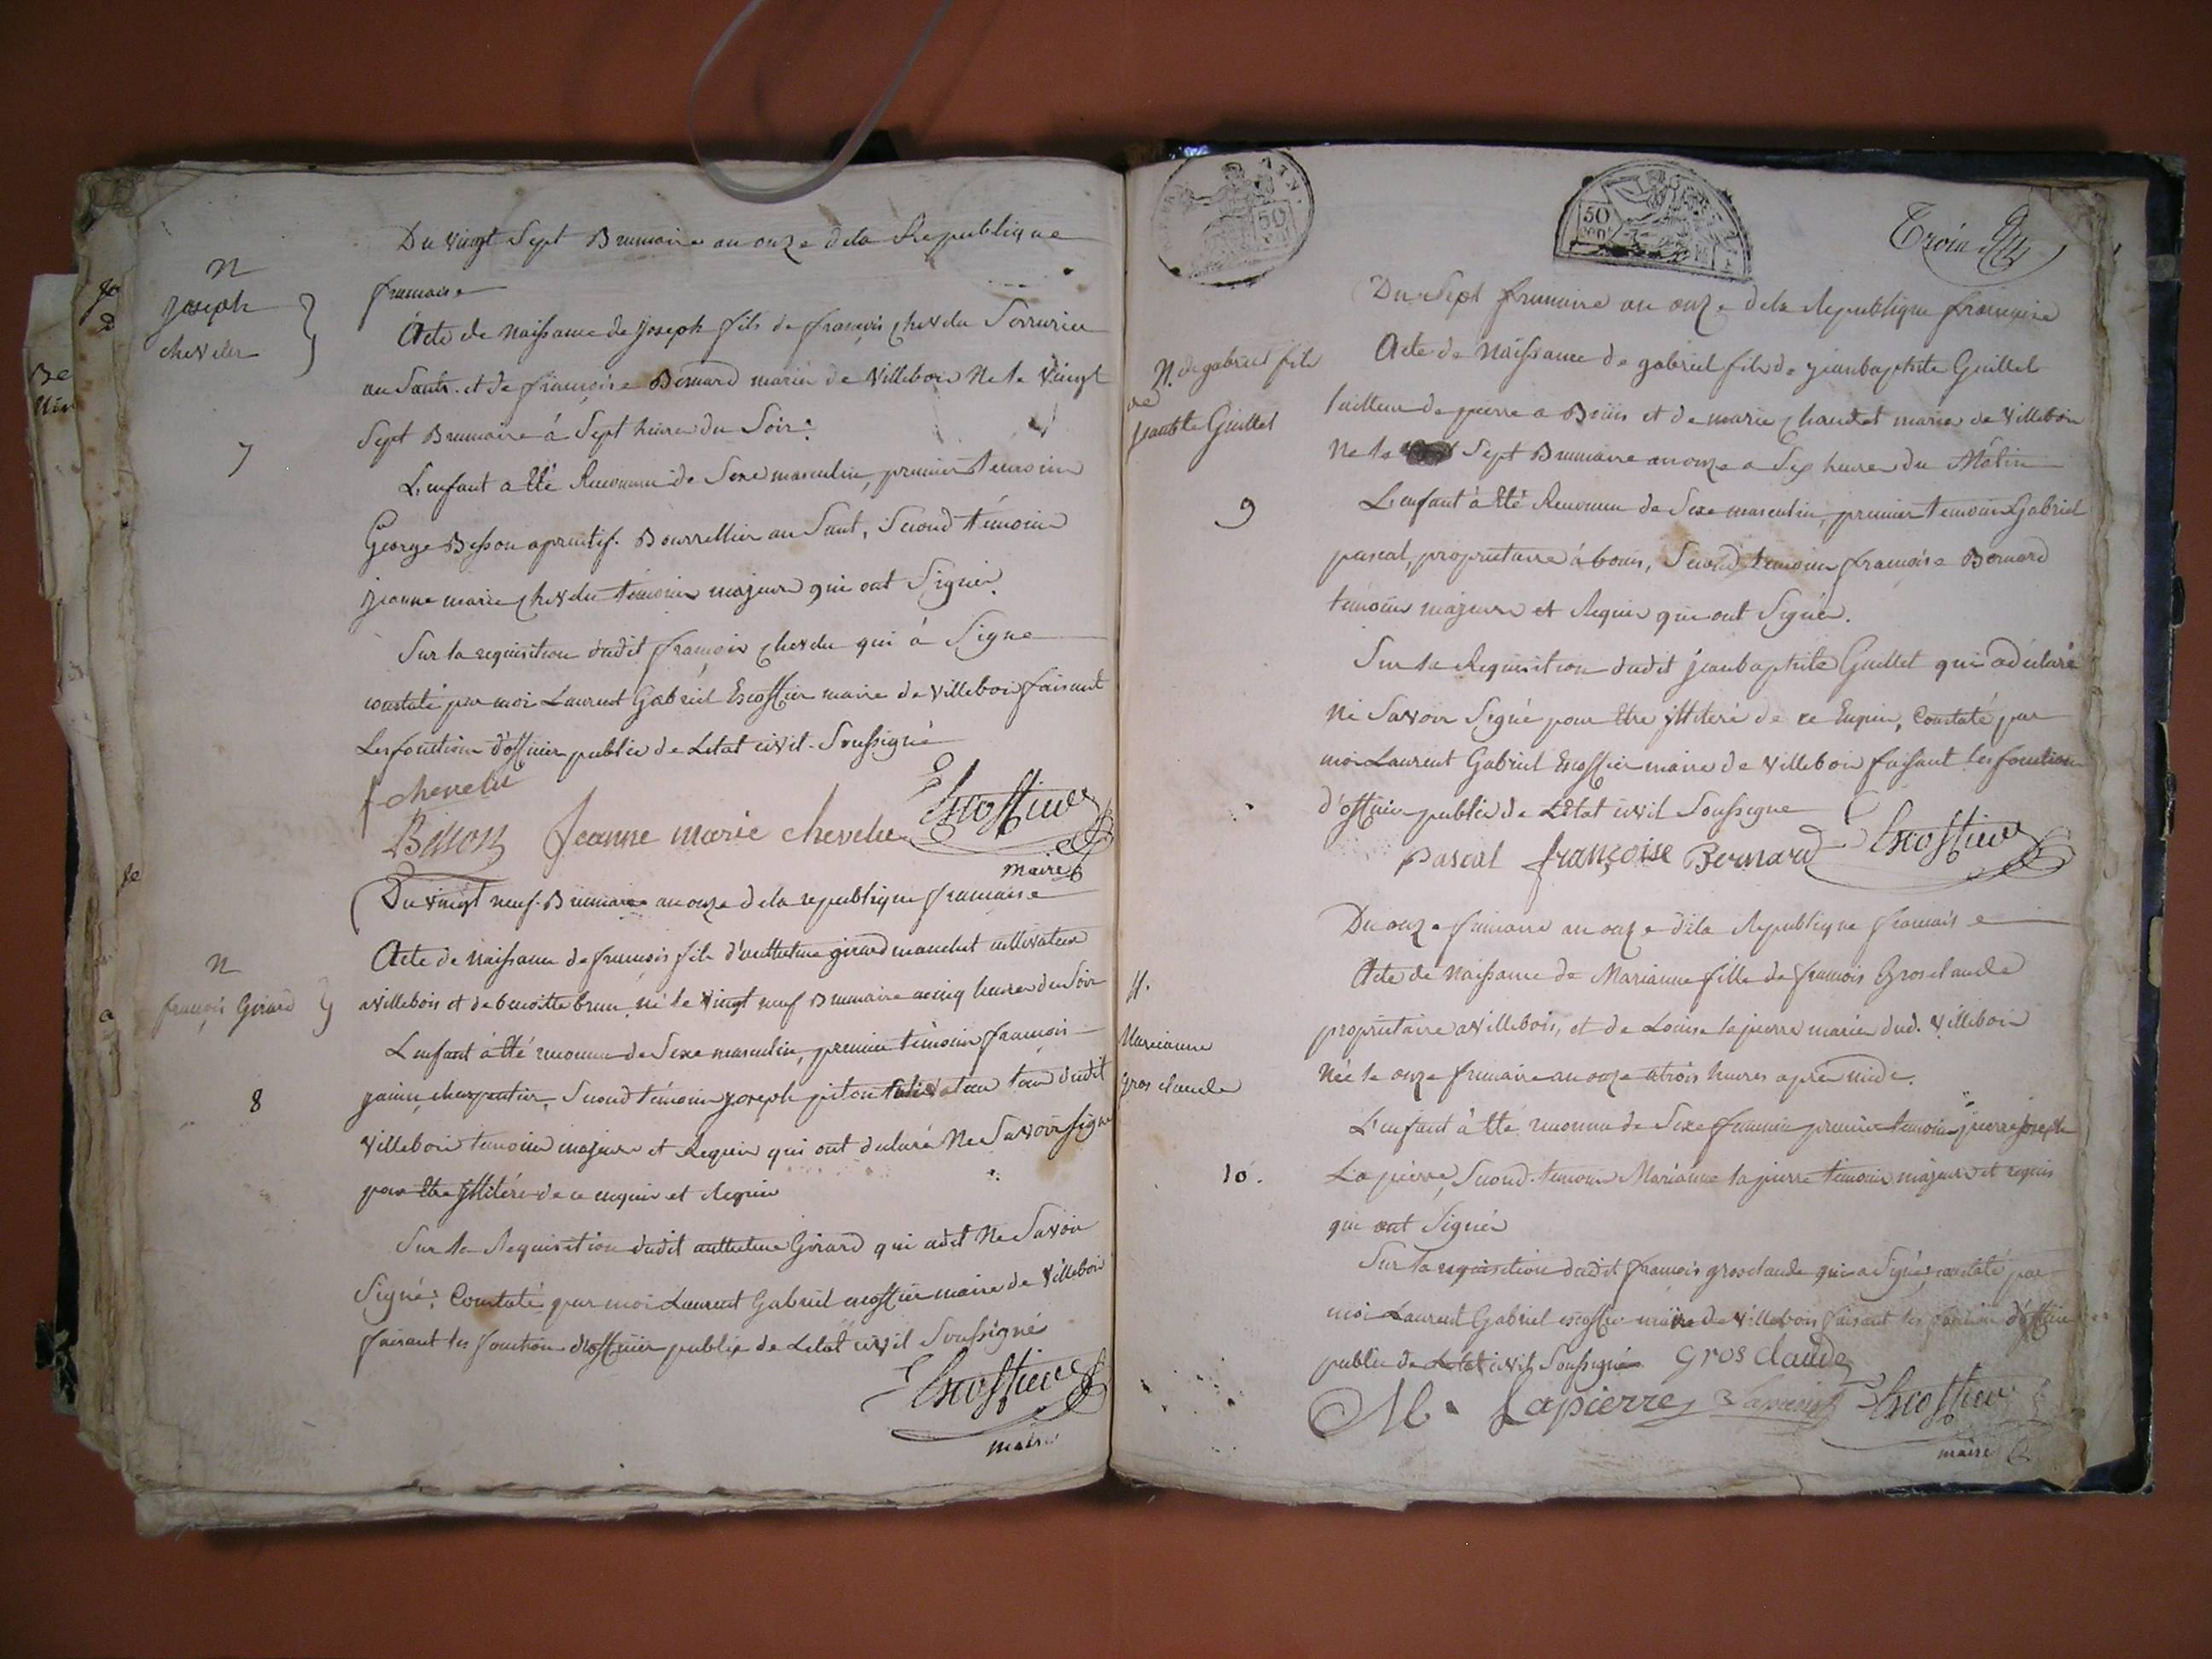 Du vingt Sept Brumaire an onze dela Republique
francaise
n
joseph
chevelu
7
Acte de Naissance de joseph fils de françois chevelu Serrurier
au Sault et de françoise Bernard mariés de Villebois Ne le Vingt
Sept Brumaire à Sept heures du Soir.
L'enfant a Eté Reconnu de Sexe masculin, premier temoin
George Besson aprentif Bourrellier au Sault, Second témoin
jeanne marie chevelu témoins majeurs qui ont Signés.
Sur la requisition dudit françois chevelu qui à Signé
constaté par moi Laurent Gabriel Escoffier maire de Villebois faisant
Les fonctions d'officier public de Letat civil Soussigné
f chevelu
Besson Jeanne marie chevelu Escoffier
maire
Du vingt neuf Brumaire an onze dela republique francaise
n
françois Girard
8
Acte de Naissance de françois fils d'anthelme girard manchet cultivateur
avillebois et de benoitte brun, né le Vingt neuf Brumaire acinq heures du Soir
L'enfant à été reconnu de Sexe masculin, premier témoin françois
charpentier, Second témoin joseph piton cultivateur tous dudit
Villebois temoins majeurs et Requis qui ont declaré Ne Savoir signé
pour Etre illiteré de ce enquis et Requis
Sur la Requisition dudit anthelme Girard qui adit Ne Savoir
Signé. Constaté par moi Laurent Gabriel escoffier maire de Villebois
faisant les fonctions d'officier public de Letat civil Soussigné
Escoffier
maire
50
50
Trois
Du Sept frimaire an onze dela Republique francaise
N. de gabriel fils
de
jean bte Guillet
9
Acte de Naissance de gabriel fils de jeanbaptiste Guillet
tailleur de pierre a Bouis et de marie chaudet mariés de Villebois
Ne le Sept Brumaire an onze a Six heures du Matin
L'enfant à Eté Reconnu de Sexe masculin, premier temoin Gabriel
pascal, proprietaire à bouis, Second temoin françoise Bernard
temoins majeurs et Requis qui ont Signés.
Sur la Requisition dudit jeanbaptiste Guillet qui adéclaré
Ne Savoir Signé pour Etre illiteré de ce Enquis, Constaté par
moi Laurent Gabriel Escoffier maire de Villebois faisant les fonctions
d'officier public de LEtat civil Soussigné
Pascal françoise Bernard Escoffier
Du onze frimaire an onze dela Republique francaise
N.
Marianne
gros claude
10.
Acte de Naissance de Marianne fille de francois Grosclaude
proprietaire avillebois, et de Louise lapierre mariés dud. Villebois
Née le onze frimaire an onze atrois heures après midi.
L'enfant à été reconnu de Sexe feminin premier temoin pierre joseph
La pierre, Second temoin Marianne lapierre temoins majeurs et requis
qui ont Signés
Sur la requisition dudit francois grosclaude qui a Signé, constaté par
moi Laurent Gabriel escoffier maire de Villebois faisant les fonctions d'officier
public de Letat civil Soussigné Gros Claude
M. Lapierre Lapierre Escoffier
maire